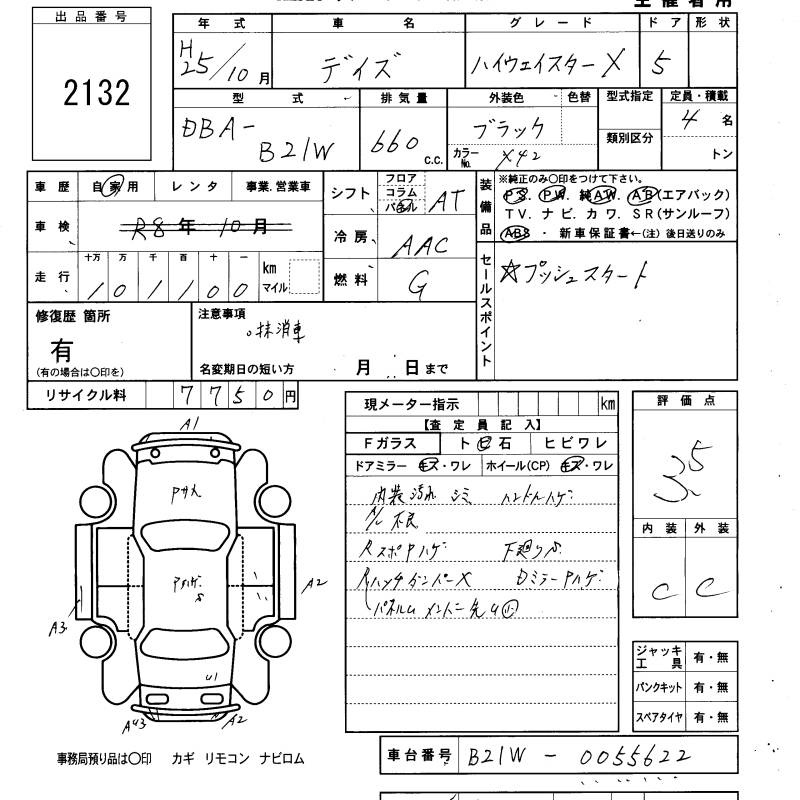 出品番号
2132
年式 車名 グレード ドア 形状
H25/10月 デイズ ハイウェイスターX 5
型式 排気量 外装色 色替 型式指定 定員・積載
DBA-B21W 660 c.c. ブラック 類別区分 4名
カラーNo. X42 トン
車歴 自家用 レンタ 事業.営業車
車検 R8年10月
走行 十万 万 千 百 十 一
101100 km マイル
シフト フロア コラム パネル AT
冷房 AAC
燃料 G
装備品 ※純正のみ〇印をつけて下さい。
PS. PW. 純AW. AB(エアバック)
TV. ナビ. カワ. SR(サンルーフ)
ABS ・ 新車保証書←(注)後日送りのみ
セールスポイント
☆プッシュスタート
修復歴 箇所
有
(有の場合は〇印を)
注意事項
。抹消車
名変期日の短い方 月 日まで
リサイクル料 7750円
現メーター指示 km
【査定員記入】
Fガラス トビ石 ヒビワレ
ドアミラー キズ・ワレ ホイール(CP) キズ・ワレ
内装汚れ シミ ハンドルハゲ
A/C不良
RスポPハゲ 下廻りS
RハッチダンパーX DミラーPハゲ
パネル
評価点
3.5
内装 外装
C C
ジャッキ工具 有・無
パンクキット 有・無
スペアタイヤ 有・無
A1
Pカスレ
Pハゲ
S
A2
A3
U1
AU3
A2
事務局預り品は〇印 カギ リモコン ナビロム
車台番号 B21W - 0055622